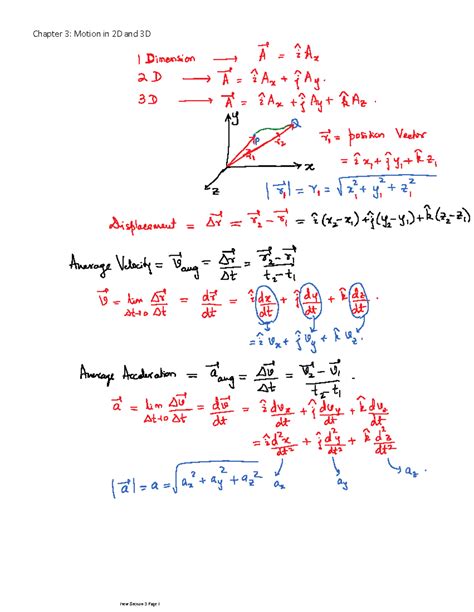 Chapter 3: Motion in 2D and 3D
1 Dimension ⟶ A⃗ = îAₓ
2 D ⟶ A⃗ = îAₓ + ĵA_y.
3 D ⟶ A⃗ = îAₓ + ĵA_y + k̂A_z.
y P Q r⃗₁ r⃗₂ x z
r⃗₁ = position Vector
= îx₁ + ĵy₁ + k̂z₁
|r⃗₁| = r₁ = √(x₁² + y₁² + z₁²)
Displacement = Δr⃗ = r⃗₂ - r⃗₁ = î(x₂-x₁) + ĵ(y₂-y₁) + k̂(z₂-z₁)
Average Velocity = v⃗_avg = Δr⃗/Δt = (r⃗₂ - r⃗₁)/(t₂ - t₁)
v⃗ = lim Δt→0 Δr⃗/Δt = dr⃗/dt = î dx/dt + ĵ dy/dt + k̂ dz/dt
= îvₓ + ĵv_y + k̂v_z.
Average Acceleration = a⃗_avg = Δv⃗/Δt = (v⃗₂ - v⃗₁)/(t₂ - t₁)
a⃗ = lim Δt→0 Δv⃗/Δt = dv⃗/dt = î dvₓ/dt + ĵ dv_y/dt + k̂ dv_z/dt
= î d²x/dt² + ĵ d²y/dt² + k̂ d²z/dt²
aₓ a_y a_z.
|a⃗| = a = √(aₓ² + a_y² + a_z²)
New Section 3 Page 1